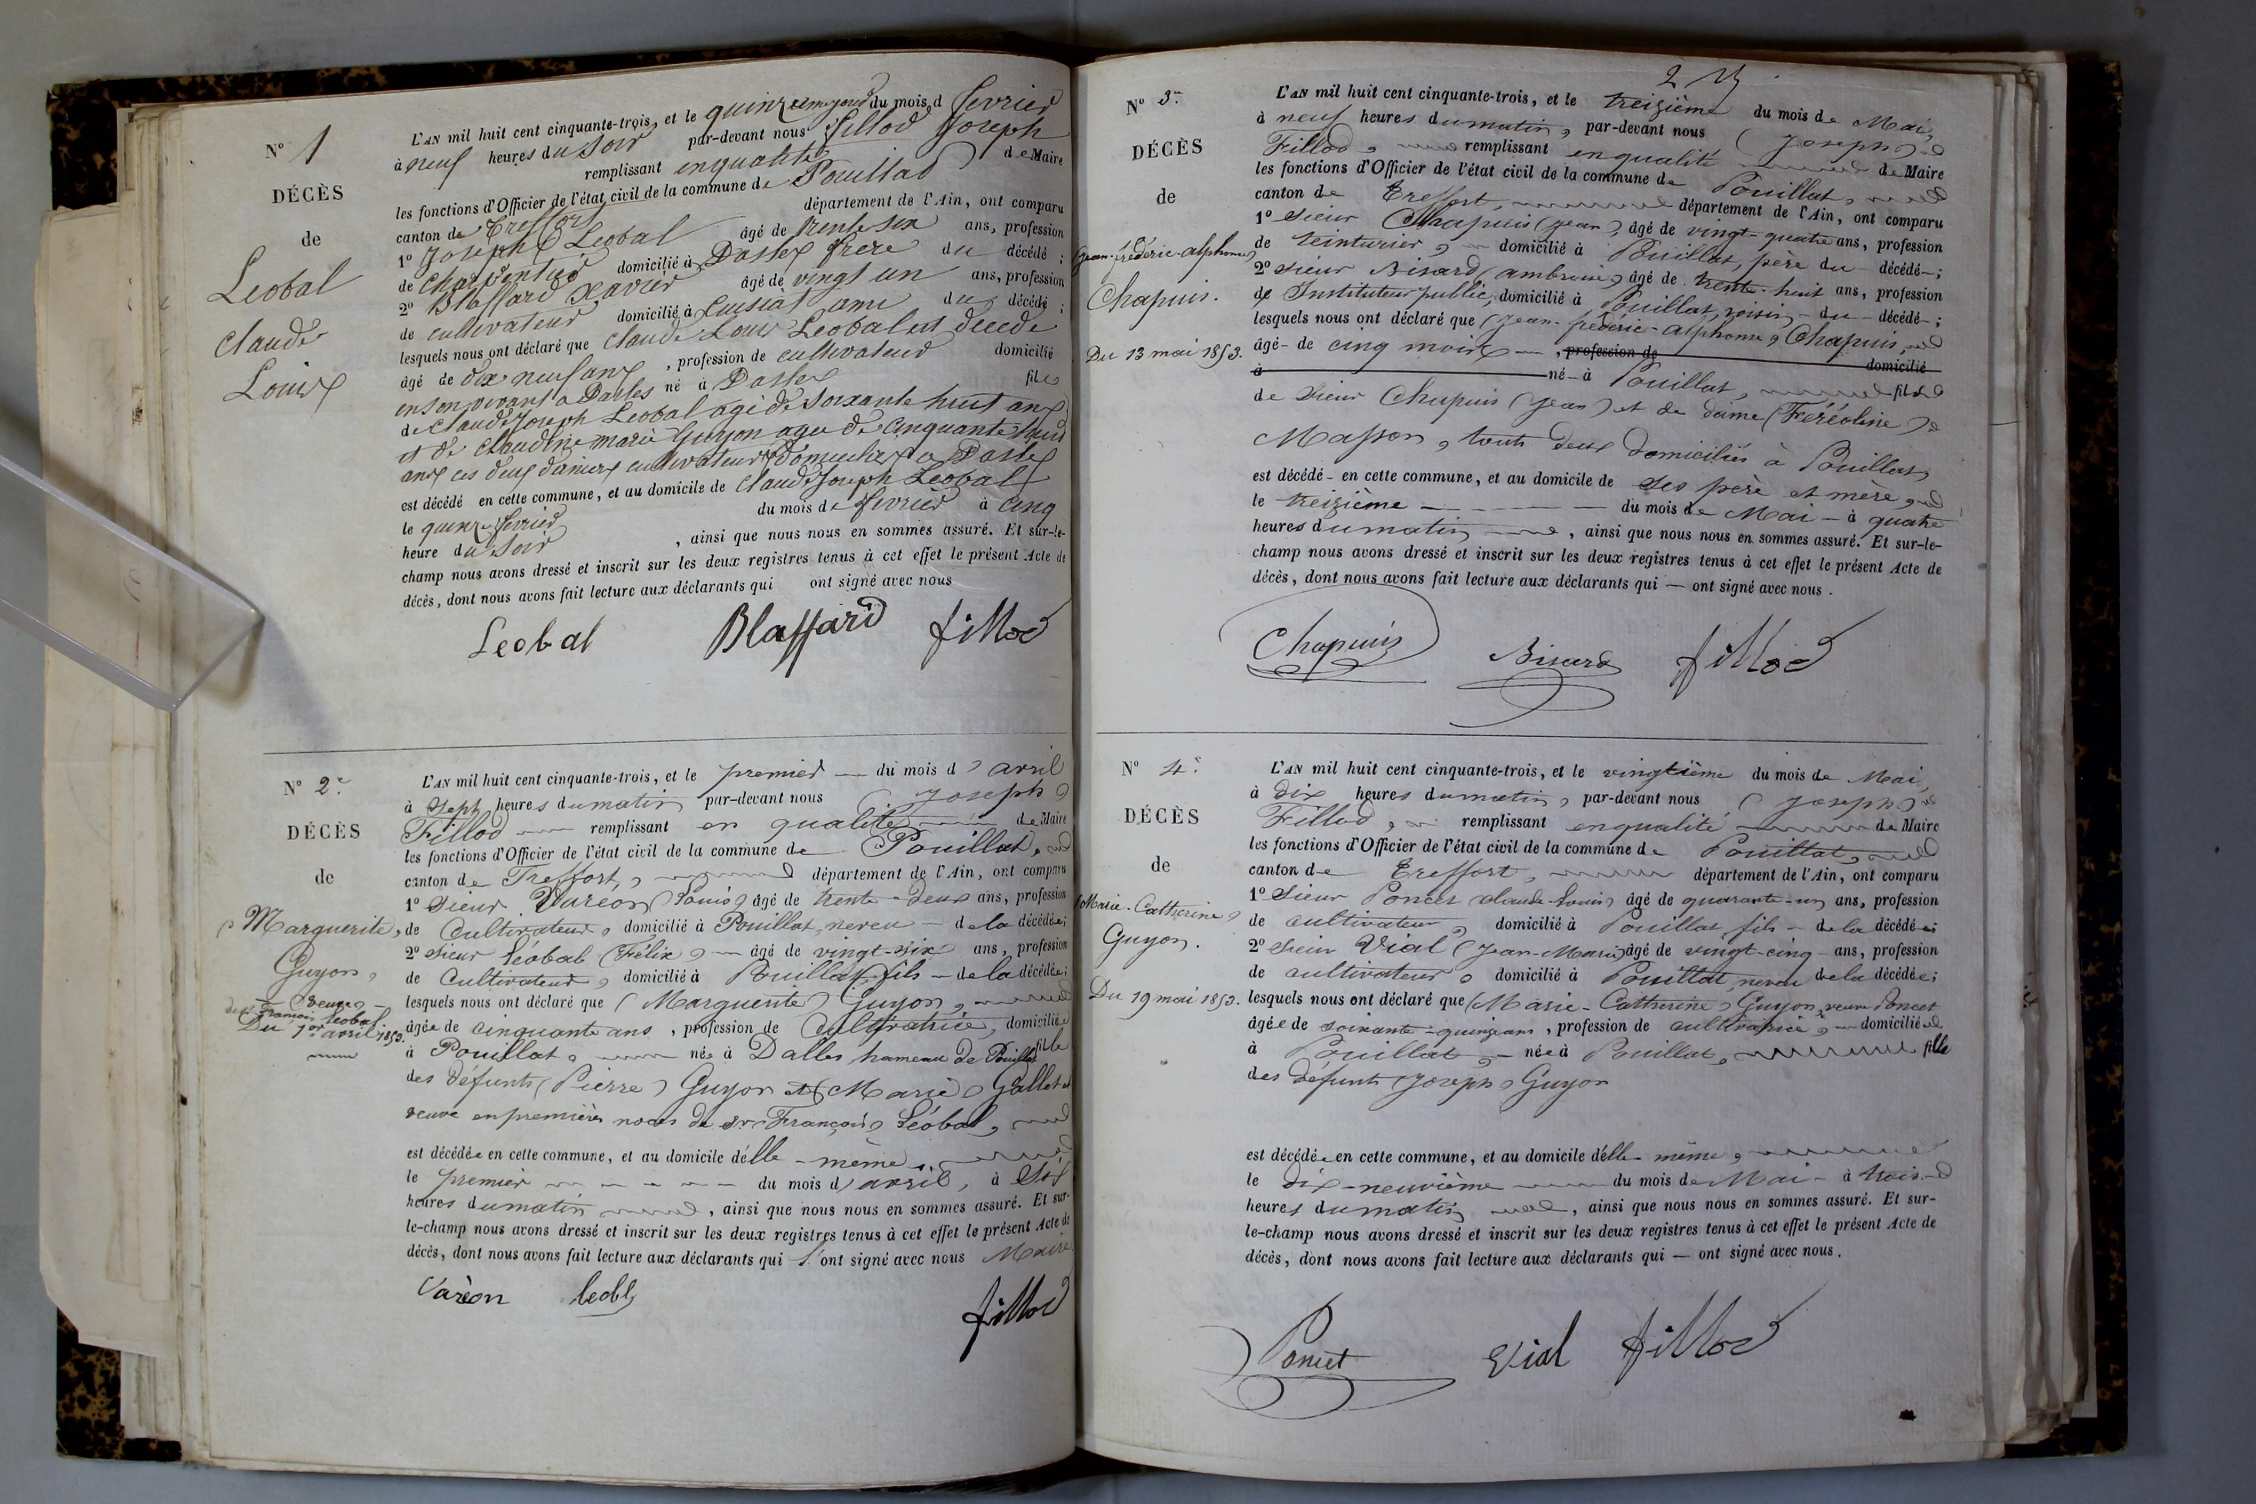 N° 1
DÉCÈS
de
Leobal
Claude
Louis
L'AN mil huit cent cinquante-trois, et le quinzieme jour du mois d fevrier
à neuf heures du soir par-devant nous fillod Joseph
remplissant en qualité de Maire
les fonctions d'Officier de l'état civil de la commune de Pouillad
canton de Treffort département de l'Ain, ont comparu
1° Joseph Leobal âgé de trente six ans, profession
de charpentier domicilié à Dalles frere du décédé ;
2° Blaffard Xavier âgé de vingt un ans, profession
de cultivateur domicilié à Cuisiat ami du décédé ;
lesquels nous ont déclaré que Claude Louis Leobal est decede
âgé de dix neuf ans , profession de cultivateur domicilié
en son vivant a Dalles né à Dalles fils
de Claude Joseph Leobal agé de soixante huit ans
et de Claudine marie Guyon agee de cinquante huit
ans ces deux daniers cultivateurs domicilies a Dalles
est décédé en cette commune, et au domicile de Claude Joseph Leobal
le quinze fevrier du mois de fevrier à cinq
heure du soir , ainsi que nous nous en sommes assuré. Et sur-le-
champ nous avons dressé et inscrit sur les deux registres tenus à cet effet le présent Acte de
décès, dont nous avons fait lecture aux déclarants qui ont signé avec nous
Leobal Blaffard fillod
N° 2.
DÉCÈS
de
(Marguerite)
Guyon,
veuve
François Leobal
Du 1er avril 1853.
L'AN mil huit cent cinquante-trois, et le premier du mois d'avril
à sept heures du matin par-devant nous (Joseph)
Fillod remplissant en qualité de Maire
les fonctions d'Officier de l'état civil de la commune de Pouillat,
canton de Treffort, département de l'Ain, ont comparu
1° Sieur Varéon (Louis) âgé de trente-deux ans, profession
de Cultivateur, domicilié à Pouillat, neveu de la décédée;
2° Sieur Léobal (Félix) âgé de vingt-six ans, profession
de Cultivateur, domicilié à Pouillat, fils de la décédée;
lesquels nous ont déclaré que (Marguerite) Guyon,
âgée de cinquante ans , profession de Cultivatrice, domiciliée
à Pouillat, née à Dalles hameau de Pouillat fille
des défunts (Pierre) Guyon et (Marie) Gallet et
veuve en premières noces de sr. François Léobal,
est décédée en cette commune, et au domicile d'elle-même,
le premier du mois d'avril, à six
heures du matin , ainsi que nous nous en sommes assuré. Et sur-
le-champ nous avons dressé et inscrit sur les deux registres tenus à cet effet le présent Acte de
décès, dont nous avons fait lecture aux déclarants qui ont signé avec nous Maire
Varéon leobl fillod
2
N° 3.
DÉCÈS
de
(Jean-fréderic-alphonse)
Chapuis.
Du 13 mai 1853.
L'AN mil huit cent cinquante-trois, et le treizième du mois de Mai,
à neuf heures du matin, par-devant nous (Joseph)
Fillod, remplissant en qualité de Maire
les fonctions d'Officier de l'état civil de la commune de Pouillat,
canton de Treffort, département de l'Ain, ont comparu
1° Sieur Chapuis (Jean), âgé de vingt-quatre ans, profession
de teinturier, domicilié à Pouillat, père du décédé ;
2° Sieur Bisard (ambroise) âgé de trente-huit ans, profession
de Instituteur public, domicilié à Pouillat, voisin du décédé ;
lesquels nous ont déclaré que (Jean-fréderic-alphonse) Chapuis,
âgé de cinq mois , profession de domicilié
à né à Pouillat, fils
de sieur Chapuis (Jean) et de dame (Féréoline)
Masson, touts deux domiciliés à Pouillat,
est décédé en cette commune, et au domicile de ses père et mère,
le treizième du mois de Mai à quatre
heures du matin , ainsi que nous nous en sommes assuré. Et sur-le-
champ nous avons dressé et inscrit sur les deux registres tenus à cet effet le présent Acte de
décès, dont nous avons fait lecture aux déclarants qui — ont signé avec nous .
Chapuis Bisard fillod
N° 4.
DÉCÈS
de
(Marie-Catherine)
Guyon.
Du 19 mai 1853.
L'AN mil huit cent cinquante-trois, et le vingtième du mois de Mai,
à dix heures du matin, par-devant nous (Joseph)
Fillod, remplissant en qualité de Maire
les fonctions d'Officier de l'état civil de la commune de Pouillat,
canton de Treffort, département de l'Ain, ont comparu
1° Sieur Poncet (claude-Louis) âgé de quarante-un ans, profession
de cultivateur, domicilié à Pouillat, fils de la décédée;
2° Sieur Vial (Jean-Marie) âgé de vingt-cinq ans, profession
de cultivateur, domicilié à Pouillat, neveu de la décédée;
lesquels nous ont déclaré que (Marie-Catherine) Guyon, veuve Poncet
âgée de soixante-quinze ans , profession de cultivatrice, domiciliée
à Pouillat née à Pouillat, fille
des défunts (Joseph) Guyon
est décédée en cette commune, et au domicile d'elle-même,
le dix-neuvième du mois de Mai à trois
heures du matin , ainsi que nous nous en sommes assuré. Et sur-
le-champ nous avons dressé et inscrit sur les deux registres tenus à cet effet le présent Acte de
décès, dont nous avons fait lecture aux déclarants qui — ont signé avec nous .
Poncet Vial fillod